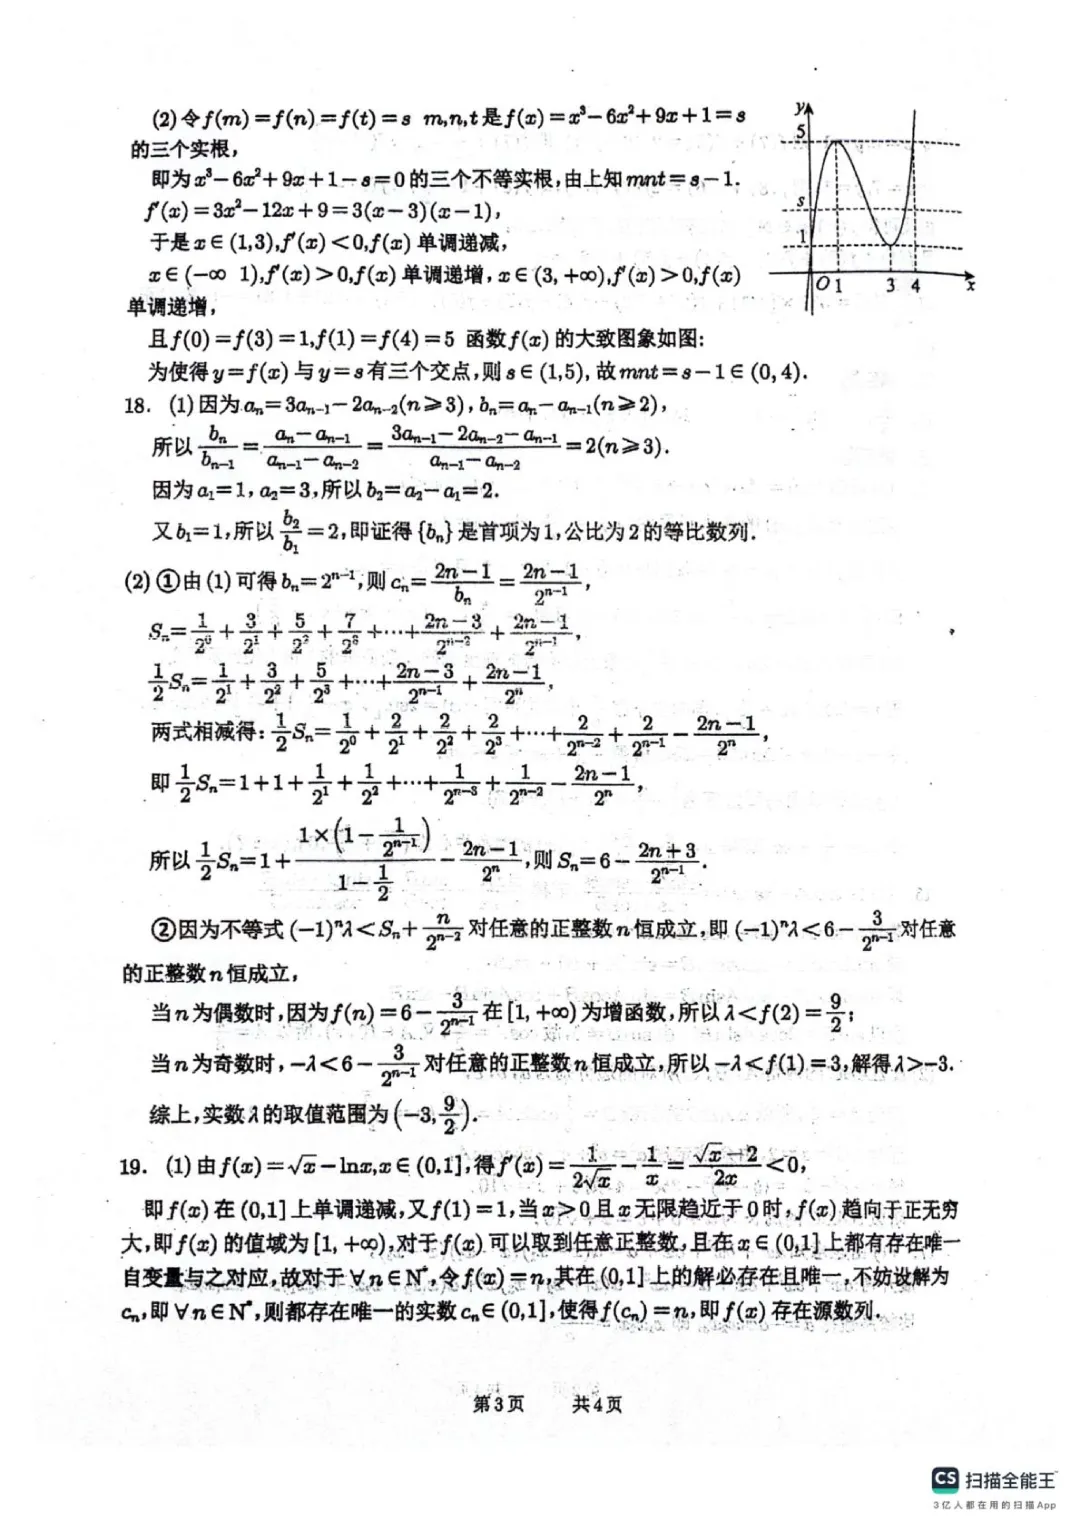 (2)令f(m)=f(n)=f(t)=s m,n,t是f(x)=x³-6x²+9x+1=s
的三个实根,
即为x³-6x²+9x+1-s=0的三个不等实根,由上知mnt=s-1.
f′(x)=3x²-12x+9=3(x-3)(x-1),
于是x∈(1,3),f′(x)<0,f(x)单调递减,
x∈(-∞ 1),f′(x)>0,f(x)单调递增,x∈(3,+∞),f′(x)>0,f(x)
单调递增,
y
5
s
1
O 1 3 4 x
且f(0)=f(3)=1,f(1)=f(4)=5 函数f(x)的大致图象如图:
为使得y=f(x)与y=s有三个交点,则s∈(1,5),故mnt=s-1∈(0,4).
18. (1)因为aₙ=3aₙ₋₁-2aₙ₋₂(n⩾3),bₙ=aₙ-aₙ₋₁(n⩾2),
所以 bₙ/bₙ₋₁ = (aₙ-aₙ₋₁)/(aₙ₋₁-aₙ₋₂) = (3aₙ₋₁-2aₙ₋₂-aₙ₋₁)/(aₙ₋₁-aₙ₋₂) =2(n⩾3).
因为a₁=1,a₂=3,所以b₂=a₂-a₁=2.
又b₁=1,所以 b₂/b₁ =2,即证得{bₙ}是首项为1,公比为2的等比数列.
(2)①由(1)可得bₙ=2ⁿ⁻¹,则cₙ= (2n-1)/bₙ = (2n-1)/2ⁿ⁻¹,
Sₙ= 1/2⁰ + 3/2¹ + 5/2² + 7/2³ +⋯+ (2n-3)/2ⁿ⁻² + (2n-1)/2ⁿ⁻¹,
1/2 Sₙ= 1/2¹ + 3/2² + 5/2³ +⋯+ (2n-3)/2ⁿ⁻¹ + (2n-1)/2ⁿ,
两式相减得: 1/2 Sₙ= 1/2⁰ + 2/2¹ + 2/2² + 2/2³ +⋯+ 2/2ⁿ⁻² + 2/2ⁿ⁻¹ - (2n-1)/2ⁿ,
即 1/2 Sₙ=1+1+ 1/2¹ + 1/2² +⋯+ 1/2ⁿ⁻³ + 1/2ⁿ⁻² - (2n-1)/2ⁿ,
所以 1/2 Sₙ=1+ 1×(1-1/2ⁿ⁻¹)/(1-1/2) - (2n-1)/2ⁿ,则Sₙ=6- (2n+3)/2ⁿ⁻¹.
②因为不等式(-1)ⁿλ<Sₙ+ n/2ⁿ⁻² 对任意的正整数n恒成立,即(-1)ⁿλ<6- 3/2ⁿ⁻¹ 对任意
的正整数n恒成立,
当n为偶数时,因为f(n)=6- 3/2ⁿ⁻¹ 在[1,+∞)为增函数,所以λ<f(2)= 9/2;
当n为奇数时,-λ<6- 3/2ⁿ⁻¹ 对任意的正整数n恒成立,所以-λ<f(1)=3,解得λ>-3.
综上,实数λ的取值范围为(-3, 9/2).
19. (1)由f(x)=√x-lnx,x∈(0,1],得f′(x)= 1/(2√x) - 1/x = (√x-2)/2x <0,
即f(x)在(0,1]上单调递减,又f(1)=1,当x>0且x无限趋近于0时,f(x)趋向于正无穷
大,即f(x)的值域为[1,+∞),对于f(x)可以取到任意正整数,且在x∈(0,1]上都有存在唯一
自变量与之对应,故对于∀n∈N*,令f(x)=n,其在(0,1]上的解必存在且唯一,不妨设解为
cₙ,即∀n∈N*,则都存在唯一的实数cₙ∈(0,1],使得f(cₙ)=n,即f(x)存在源数列.
第3页 共4页
CS 扫描全能王
3亿人都在用的扫描App